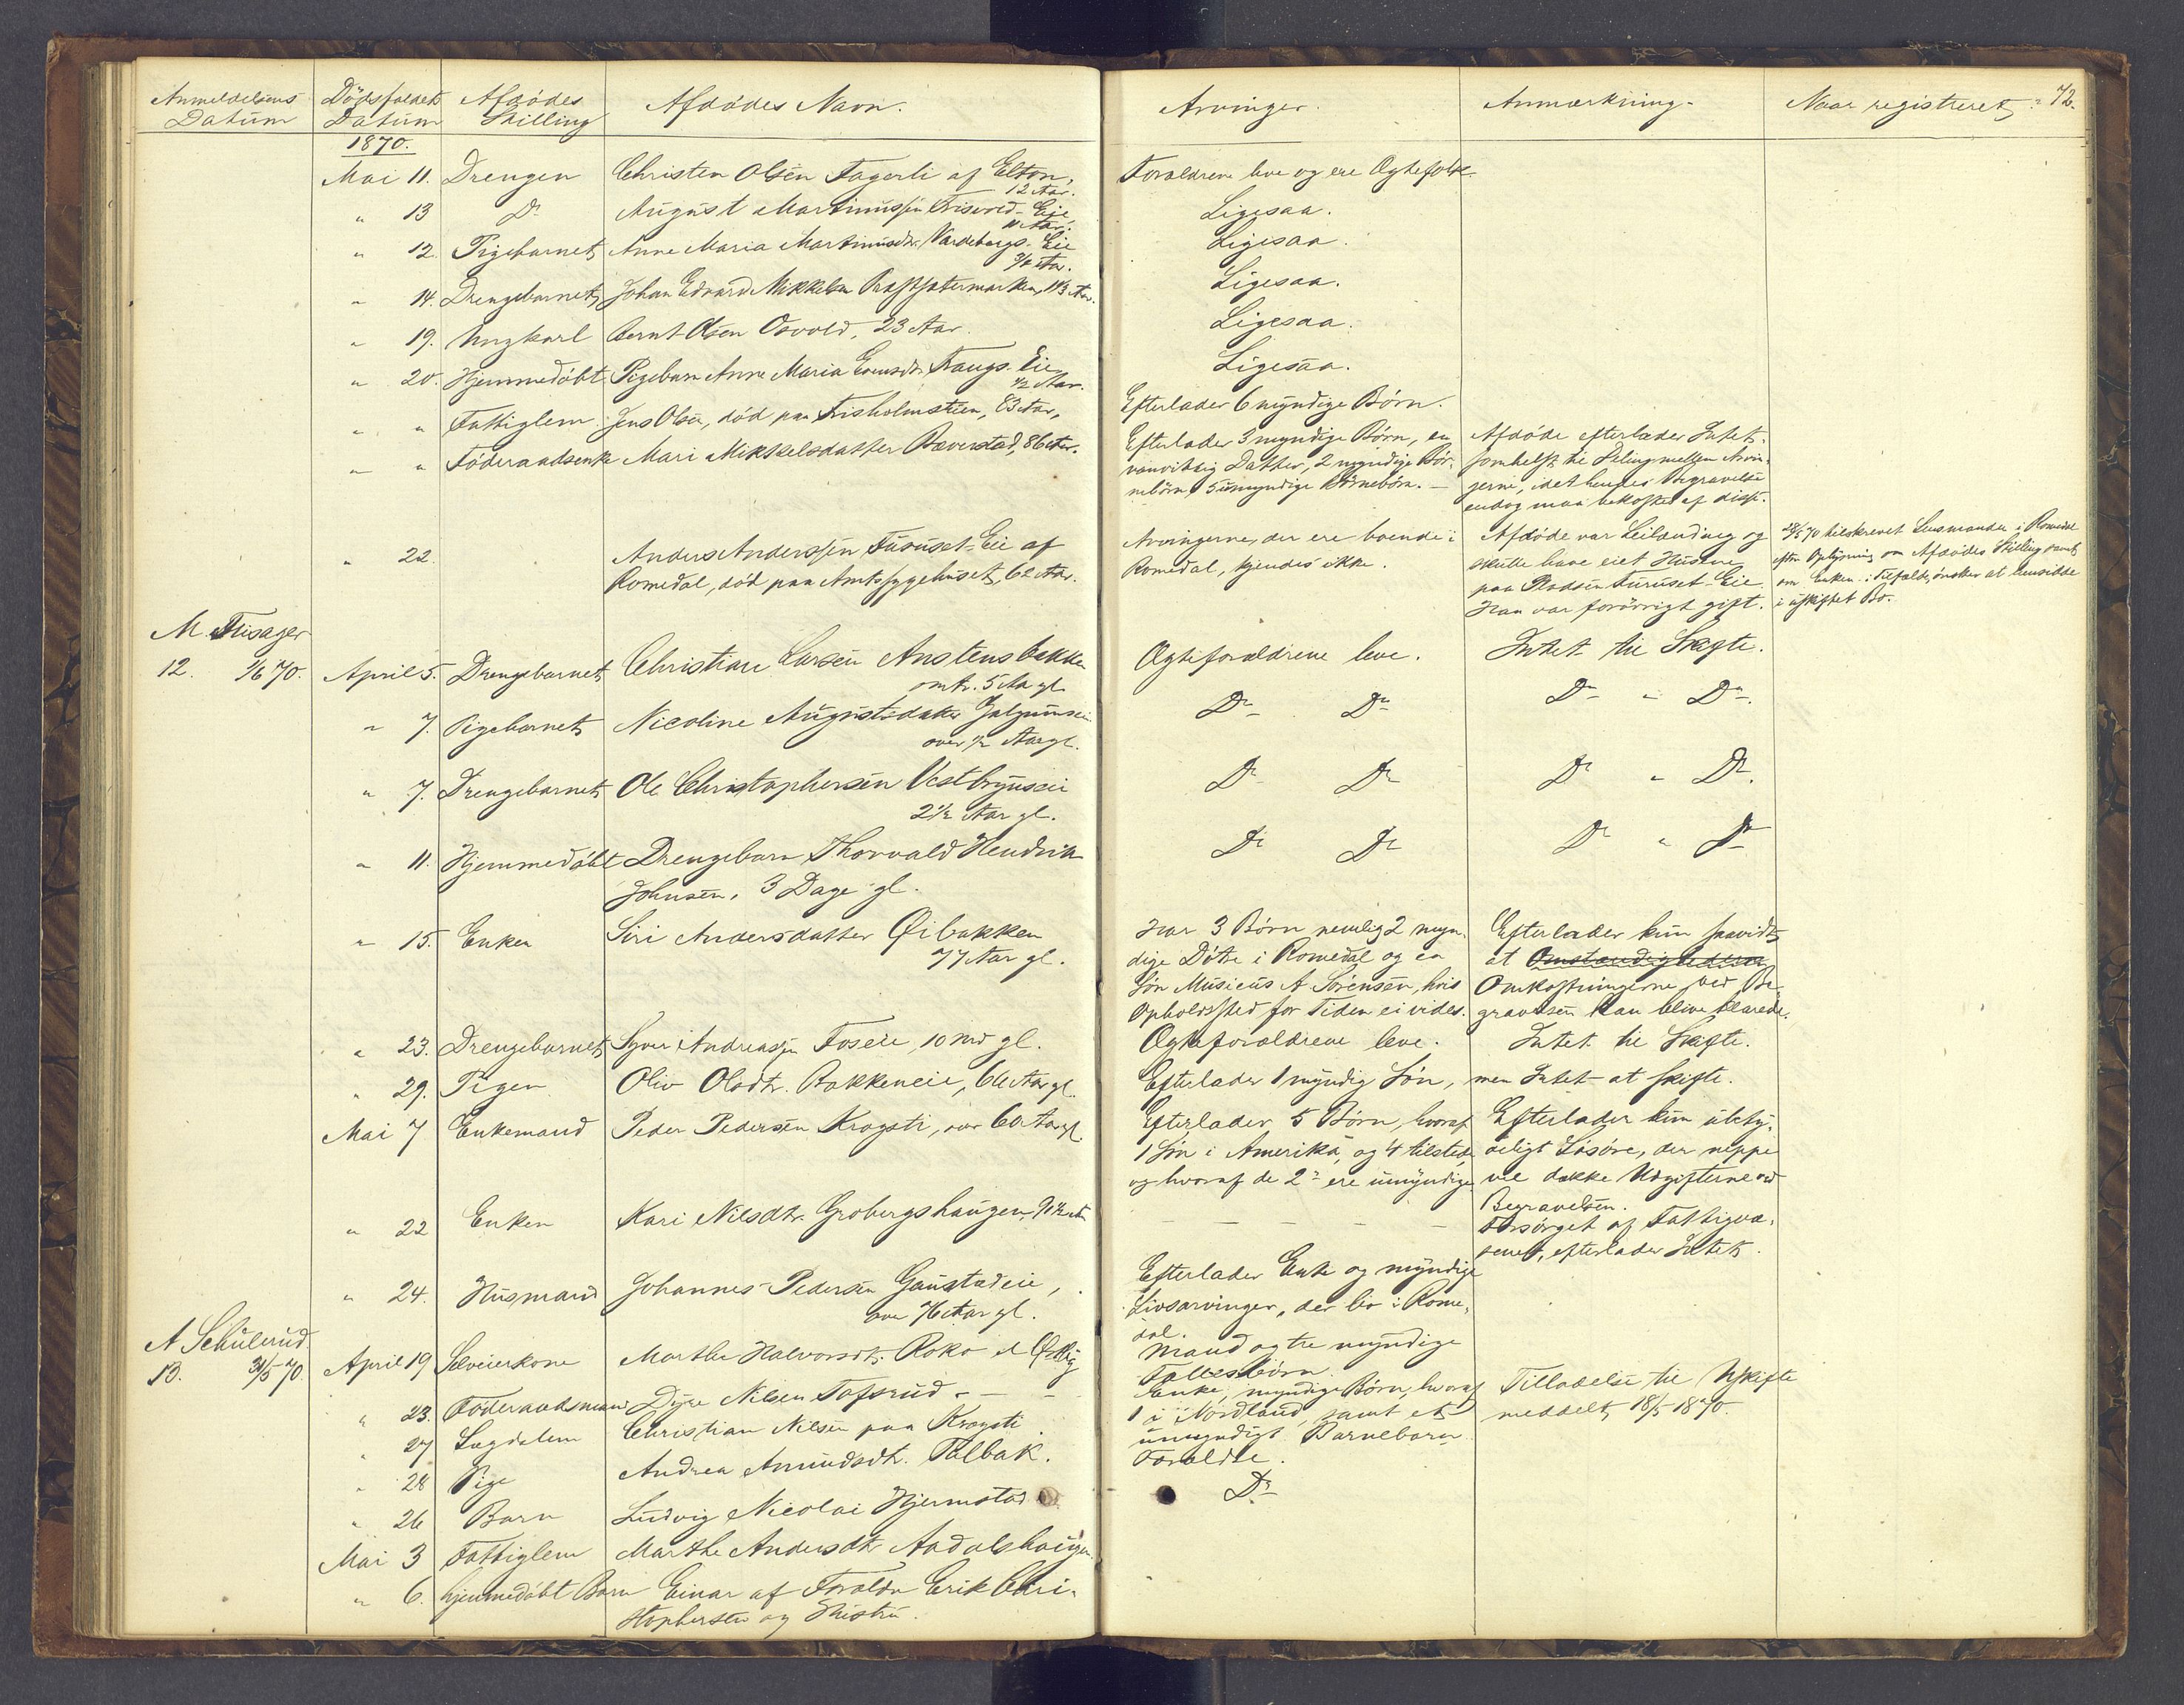 Anmeldelsens Datum
Dödsfaldets Datum
Afdödes Stilling
Afdödes Navn.
Arvinger.
Anmærkning.
Naar registreret.
72.
1870.
Mai 11. Drengen Christen Olsen Fagerli af Elton, 12 Aar.
Forældrene leve og ere Ægtefolk.
" 13 Do August Martinussen Eie
Ligesaa.
" 12. Pigebarnet Anne Maria Martinusdr. Vardebergs Eie 3/4 Aar.
Ligesaa.
" 14. Drengebarnet Johan Edvard Mikkelsen 1 1/3 Aar.
Ligesaa.
" 19. Ungkarl Bernt Olsen Osvold, 23 Aar.
Ligesaa.
" 20. Hjemmedöbt Pigebarn Anne Maria Evensdr. Fraugs. Eie 1/2 Aar.
Ligesaa.
" " Fattiglem Jens Olsen, död paa Frisholmstuen, 83 Aar.
Efterlader 6 myndige Börn.
" " Föderaadsenke Mari Mikkelsdatter Bæverstad, 86 Aar.
Efterlader 3 myndige Börn, en
vanvittig Datter, 2 myndige Bör-
nebörn, 5 umyndige Börnebörn. —
Afdöde efterlader Intet
somhelst til Deling mellem Arvin-
gerne, idet hendes Begravelse
endog maa bekostes af disse.
" 22. Anders Anderssen Furuset-Eie af
Romedal, död paa Amtssygehuset, 62 Aar.
Arvingerne, der ere boende i
Romedal, kjendes ikke.
Afdöde var Leilænding og
skulle have eiet Husene
paa Pladsen Furuset-Eie.
Han var forövrigt gift.
28/5 70 tilskrevet Lensmanden i Romedal
efter Oplysning om Afdödes Stilling samt
om Enken i Tilfælde önsker at hensidde
i uskiftet Bo.
M. Fusager
12. 1/6 70. April 5. Drengebarnet Christian Larsen Anstensbakken
omtr. 5 Aar gl.
Ægteforældrene leve. Intet til Skifte.
" 7. Pigebarnet Nicoline Augustsdatter
over 1/2 Aar gl.
Do Do Do " Do.
" 7. Drengebarnet Ole Christophersen Vestbynseie
2 1/2 Aar gl.
Do Do Do " Do.
" 11. Hjemmedöbt Drengebarn Thorvald Hendrik
Johnsen, 3 Dage gl.
Do Do Do " Do
" 15. Enken Siri Andersdatter Öibakken
77 Aar gl.
Har 3 Börn nemlig 2 myn-
dige Dötre i Romedal og en
Sön Musicus A Sörensen, hvis
Opholdssted for Tiden ei vides.
Efterlader kun saavidt
at Omstændighederne
Omkostningerne ved Be-
gravelsen kan blive klarede.
" 23. Drengebarnet Syver Andreassen Foseie, 10 Md gl.
Ægteforældrene leve. Intet til Skifte.
" 29. Pigen Oliv Olsdtr. Bakkeneie, 66 Aar gl.
Efterlader 1 myndig Sön, men Intet at skifte.
Mai 7 Enkemand Peder Pedersen Krogsti, over 60 Aar gl.
Efterlader 5 Börn, hvoraf
1 Sön i Amerika, og 4 tilstede
og hvoraf de 2de ere umyndige
Efterlader kun ubety-
deligt Lösöre, der neppe
vil dække Udgifterne ved
Begravelsen.
" 22 Enken Kari Nilsdtr. Grobergshaugen,
Forsörget af Fattigvæ-
senet, efterlader Intet.
" 24. Husmand Johannes Pedersen Gaustadeie,
over 76 Aar gl.
Efterlader Enke og myndige
Livsarvinger, der bo i Rome-
dal.
A Schulerud.
13. 31/5 70. April 19 Selveierkone Marthe Halvorsdtr. Roko
Mand og tre myndige
Fællesbörn.
" 23. Föderaadsmand Dyre Nilsen Tofsrud - — -
Enke, myndige Börn, hvoraf
1 i Nordland, samt et
umyndigt Barnebarn
Tilladelse til Uskifte
meddelt 18/5 1870.
" 27 Lægdslem Christian Nilsen paa Krogsti
" 28 Pige Andrea Amundsdtr. Talbak.
Forældre.
" 26 Barn Ludvig Nicolai Hjermstad
Do
Mai 3 Fattiglem Marthe Andersdtr Aadalshaugen
" 6. hjemmedöbt Barn Einar af Forældre Erik Chri-
stophersen og Hustru.